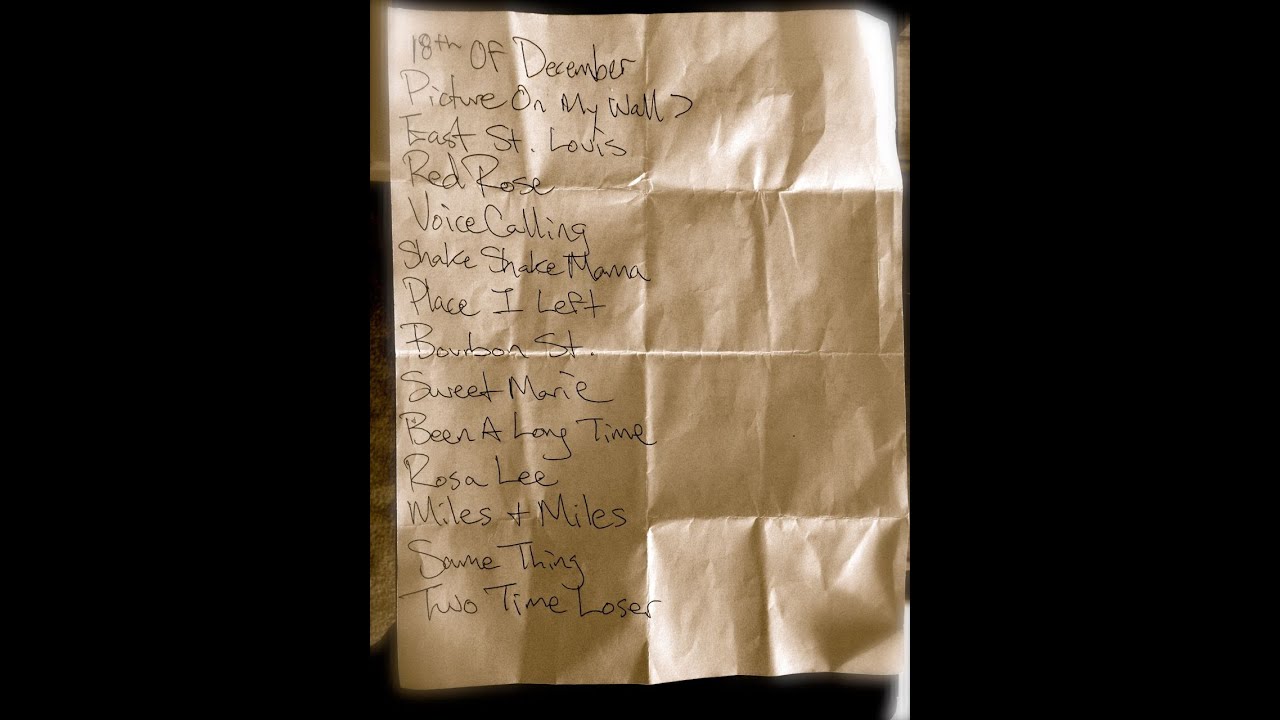 18th Of December
Picture On My Wall >
East St. Louis
Red Rose
Voice Calling
Shake Shake Mama
Place I Left
Bourbon St.
Sweet Marie
Been A Long Time
Rosa Lee
Miles + Miles
Same Thing
Two Time Loser